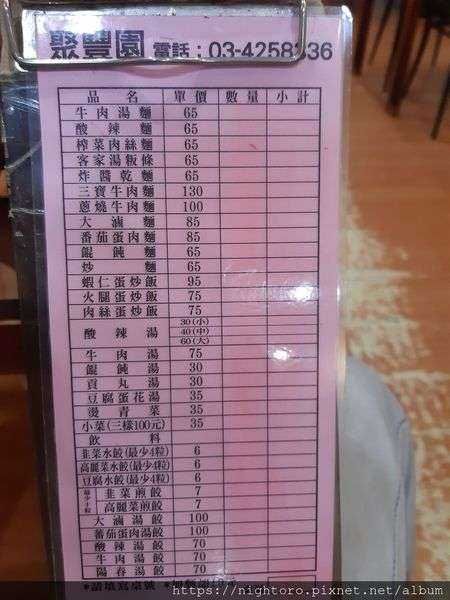 聚豐園 電話：03-4258336
品名 單價 數量 小計
牛肉湯麵 65
酸辣麵 65
榨菜肉絲麵 65
客家湯粄條 65
炸醬乾麵 65
三寶牛肉麵 130
蔥燒牛肉麵 100
大滷麵 85
番茄蛋肉麵 85
餛飩麵 65
炒麵 65
蝦仁蛋炒飯 95
火腿蛋炒飯 75
肉絲蛋炒飯 75
酸辣湯 30(小)
40(中)
60(大)
牛肉湯 75
餛飩湯 30
貢丸湯 30
豆腐蛋花湯 35
燙青菜 35
小菜(三樣100元) 35
飲料
韭菜水餃(最少4粒) 6
高麗菜水餃(最少4粒) 6
豆腐水餃(最少4粒) 6
韭菜煎餃 7
高麗菜煎餃 7
大滷湯餃 100
蕃茄蛋肉湯餃 100
酸辣湯餃 70
牛肉湯餃 70
陽春湯餃 70
*請填寫桌號
https://nightoro.pixnet.net/album